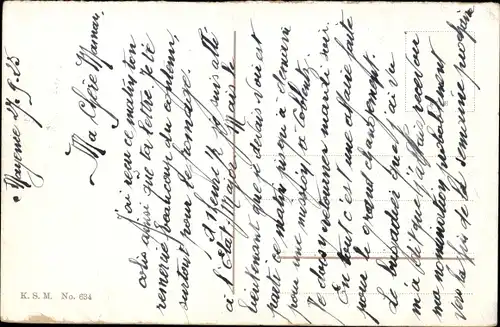 Mayence 27.9.25
Ma Chère Maman,
J'ai reçu ce matin ton
colis ainsi que ta lettre, je te
remercie beaucoup du contenu,
surtout pour les
A 1 heure je suis allé
à l'Etat Major. Mais le
lieutenant que je devais voir est
parti ce matin jusqu'à demain
pour une mission à Coblentz
je dois y retourner mardi soir.
En tout c'est une affaire faite
pour le grand changement.
Le brigadier que j'ai vu
m'a dit que j'allais recevoir
ma nomination probablement
vers la fin de la semaine prochaine
K. S. M. No. 634